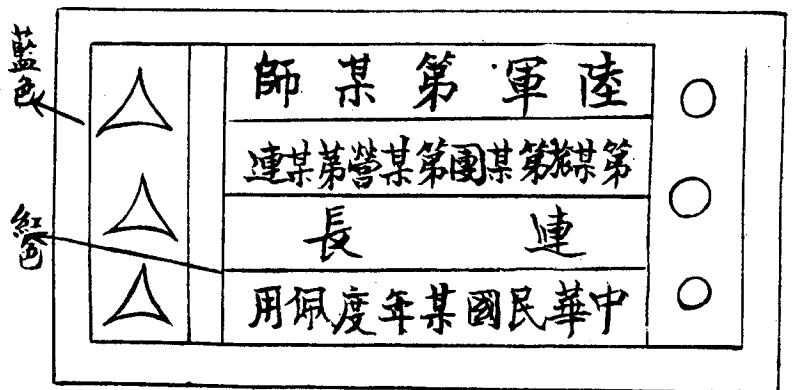 藍色
紅色
陸軍第某師
第某旅第某團第某營第某連
連長
中華民國某年度佩用